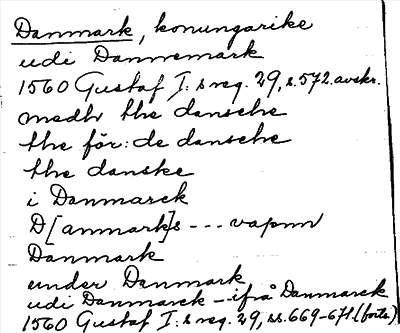 Danmark, konungarike
udi Dannemark
1560 Gustaf I: s reg. 29, s. 572. avskr.
medh the dansche
the för: de dansche
the danske
i Danmarck
D[anmark]s --- vapnn
Danmark
under Danmark
udi Danmarck - ifrå Danmarck
1560 Gustaf I: s reg. 29, ss. 669-671 (forts)